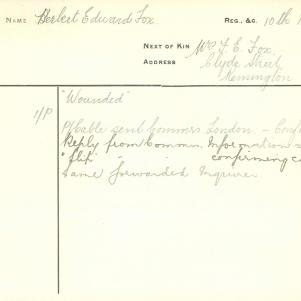 NAME Herbert Edward Fox
REG., &C. 10th
NEXT OF KIN Mr J. E. Fox
ADDRESS Clyde Street
Kensington
"Wounded"
1/P P/Cable sent Commrs London - Conf
Reply from Commrs. Information
confirming ca
Same forwarded Inquirer